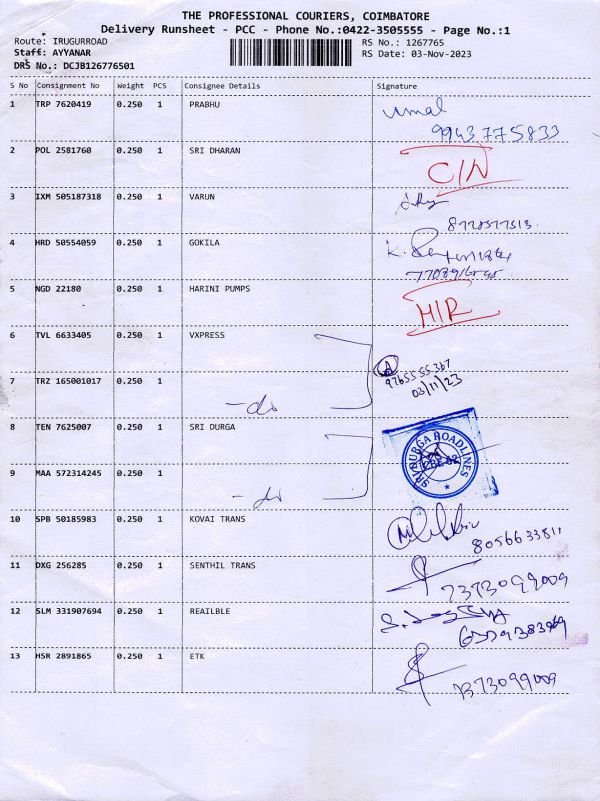 THE PROFESSIONAL COURIERS, COIMBATORE
Delivery Runsheet - PCC - Phone No.:0422-3505555 - Page No.:1
Route: IRUGURROAD
RS No.: 1267765
Staff: AYYANAR
RS Date: 03-Nov-2023
DRS No.: DCJB126776501
S No Consignment No Weight PCS Consignee Details Signature
1 TRP 7620419 0.250 1 PRABHU
9943775833
2 POL 2581760 0.250 1 SRI DHARAN C/N
3 IXM 505187318 0.250 1 VARUN
4 HRD 50554059 0.250 1 GOKILA
5 NGD 22180 0.250 1 HARINI PUMPS
6 TVL 6633405 0.250 1 VXPRESS
9765555367
03/11/23
7 TRZ 165001017 0.250 1 -do
8 TEN 7625007 0.250 1 SRI DURGA
SRI DURGA ROADLINES
CBE-02
9 MAA 572314245 0.250 1 -do
10 SPB 50185983 0.250 1 KOVAI TRANS
8056633811
11 DXG 256285 0.250 1 SENTHIL TRANS
7373099009
12 SLM 331907694 0.250 1 REAILBLE
13 HSR 2891865 0.250 1 ETK
7373099009